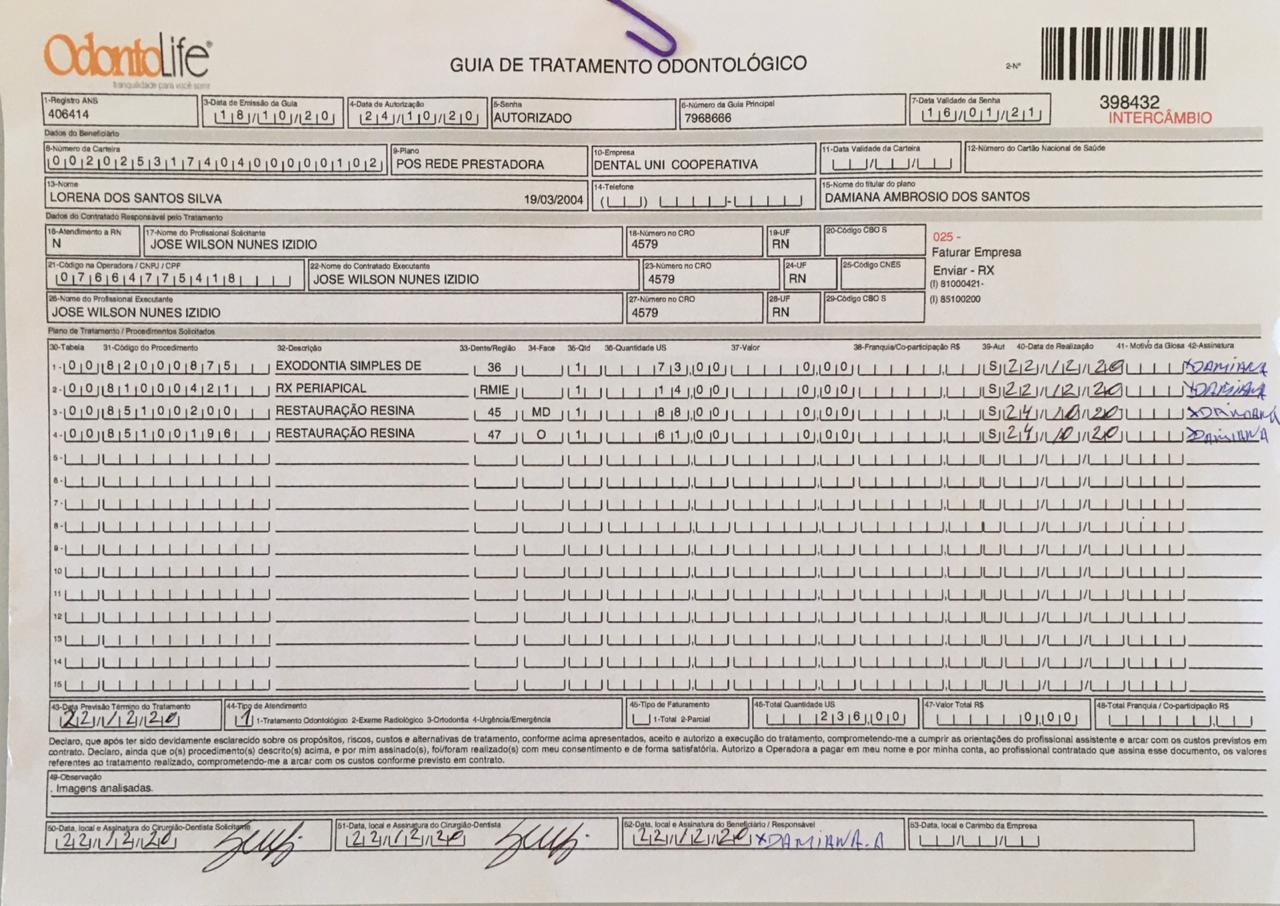 OdontoLife®
tranquilidade para você sorrir
GUIA DE TRATAMENTO ODONTOLÓGICO
2-Nº
398432
INTERCÂMBIO
1-Registro ANS
406414
3-Data de Emissão da Guia
18/10/20
4-Data de Autorização
24/10/20
5-Senha
AUTORIZADO
6-Número da Guia Principal
7968666
7-Data Validade da Senha
16/01/21
Dados do Beneficiário
8-Número da Carteira
00202531740400000102
9-Plano
POS REDE PRESTADORA
10-Empresa
DENTAL UNI COOPERATIVA
11-Data Validade da Carteira
12-Número do Cartão Nacional de Saúde
13-Nome
LORENA DOS SANTOS SILVA 19/03/2004
14-Telefone
15-Nome do titular do plano
DAMIANA AMBROSIO DOS SANTOS
Dados do Contratado Responsável pelo Tratamento
16-Atendimento a RN
N
17-Nome do Profissional Solicitante
JOSE WILSON NUNES IZIDIO
18-Número no CRO
4579
19-UF
RN
20-Código CBO S
025 -
Faturar Empresa
Enviar - RX
(I) 81000421-
(I) 85100200
21-Código na Operadora / CNPJ / CPF
07664775418
22-Nome do Contratado Executante
JOSE WILSON NUNES IZIDIO
23-Número no CRO
4579
24-UF
RN
25-Código CNES
26-Nome do Profissional Executante
JOSE WILSON NUNES IZIDIO
27-Número no CRO
4579
28-UF
RN
29-Código CBO S
Plano de Tratamento / Procedimentos Solicitados
30-Tabela 31-Código do Procedimento 32-Descrição 33-Dente/Região 34-Face 35-Qtd 36-Quantidade US 37-Valor 38-Franquia/Co-participação R$ 39-Aut 40-Data de Realização 41- Motivo da Glosa 42-Assinatura
1- 00 82000875 EXODONTIA SIMPLES DE 36 1 73,00 0,00 S 22/12/20 XDAMIANA
2- 00 81000421 RX PERIAPICAL RMIE 1 14,00 0,00 S 22/12/20 XDAMIANA
3- 00 85100200 RESTAURAÇÃO RESINA 45 MD 1 88,00 0,00 S 24/10/20 XDAMIANA
4- 00 85100196 RESTAURAÇÃO RESINA 47 O 1 61,00 0,00 S 24/10/20 XDAMIANA
5-
6-
7-
8-
9-
10
11
12
13
14
15
43-Data Previsão Término do Tratamento
22/12/20
44-Tipo de Atendimento
1 1-Tratamento Odontológico 2-Exame Radiológico 3-Ortodontia 4-Urgência/Emergência
45-Tipo de Faturamento
1-Total 2-Parcial
46-Total Quantidade US
236,00
47-Valor Total R$
0,00
48-Total Franquia / Co-participação R$
Declaro, que após ter sido devidamente esclarecido sobre os propósitos, riscos, custos e alternativas de tratamento, conforme acima apresentados, aceito e autorizo a execução do tratamento, comprometendo-me a cumprir as orientações do profissional assistente e arcar com os custos previstos em
contrato. Declaro, ainda que o(s) procedimento(s) descrito(s) acima, e por mim assinado(s), foi/foram realizado(s) com meu consentimento e de forma satisfatória. Autorizo a Operadora a pagar em meu nome e por minha conta, ao profissional contratado que assina esse documento, os valores
referentes ao tratamento realizado, comprometendo-me a arcar com os custos conforme previsto em contrato.
49-Observação
. Imagens analisadas.
50-Data, local e Assinatura do Cirurgião-Dentista Solicitante
22/12/20
51-Data, local e Assinatura do Cirurgião-Dentista
22/12/20
52-Data, local e Assinatura do Beneficiário / Responsável
22/12/20 XDAMIANA.A
53-Data, local e Carimbo da Empresa